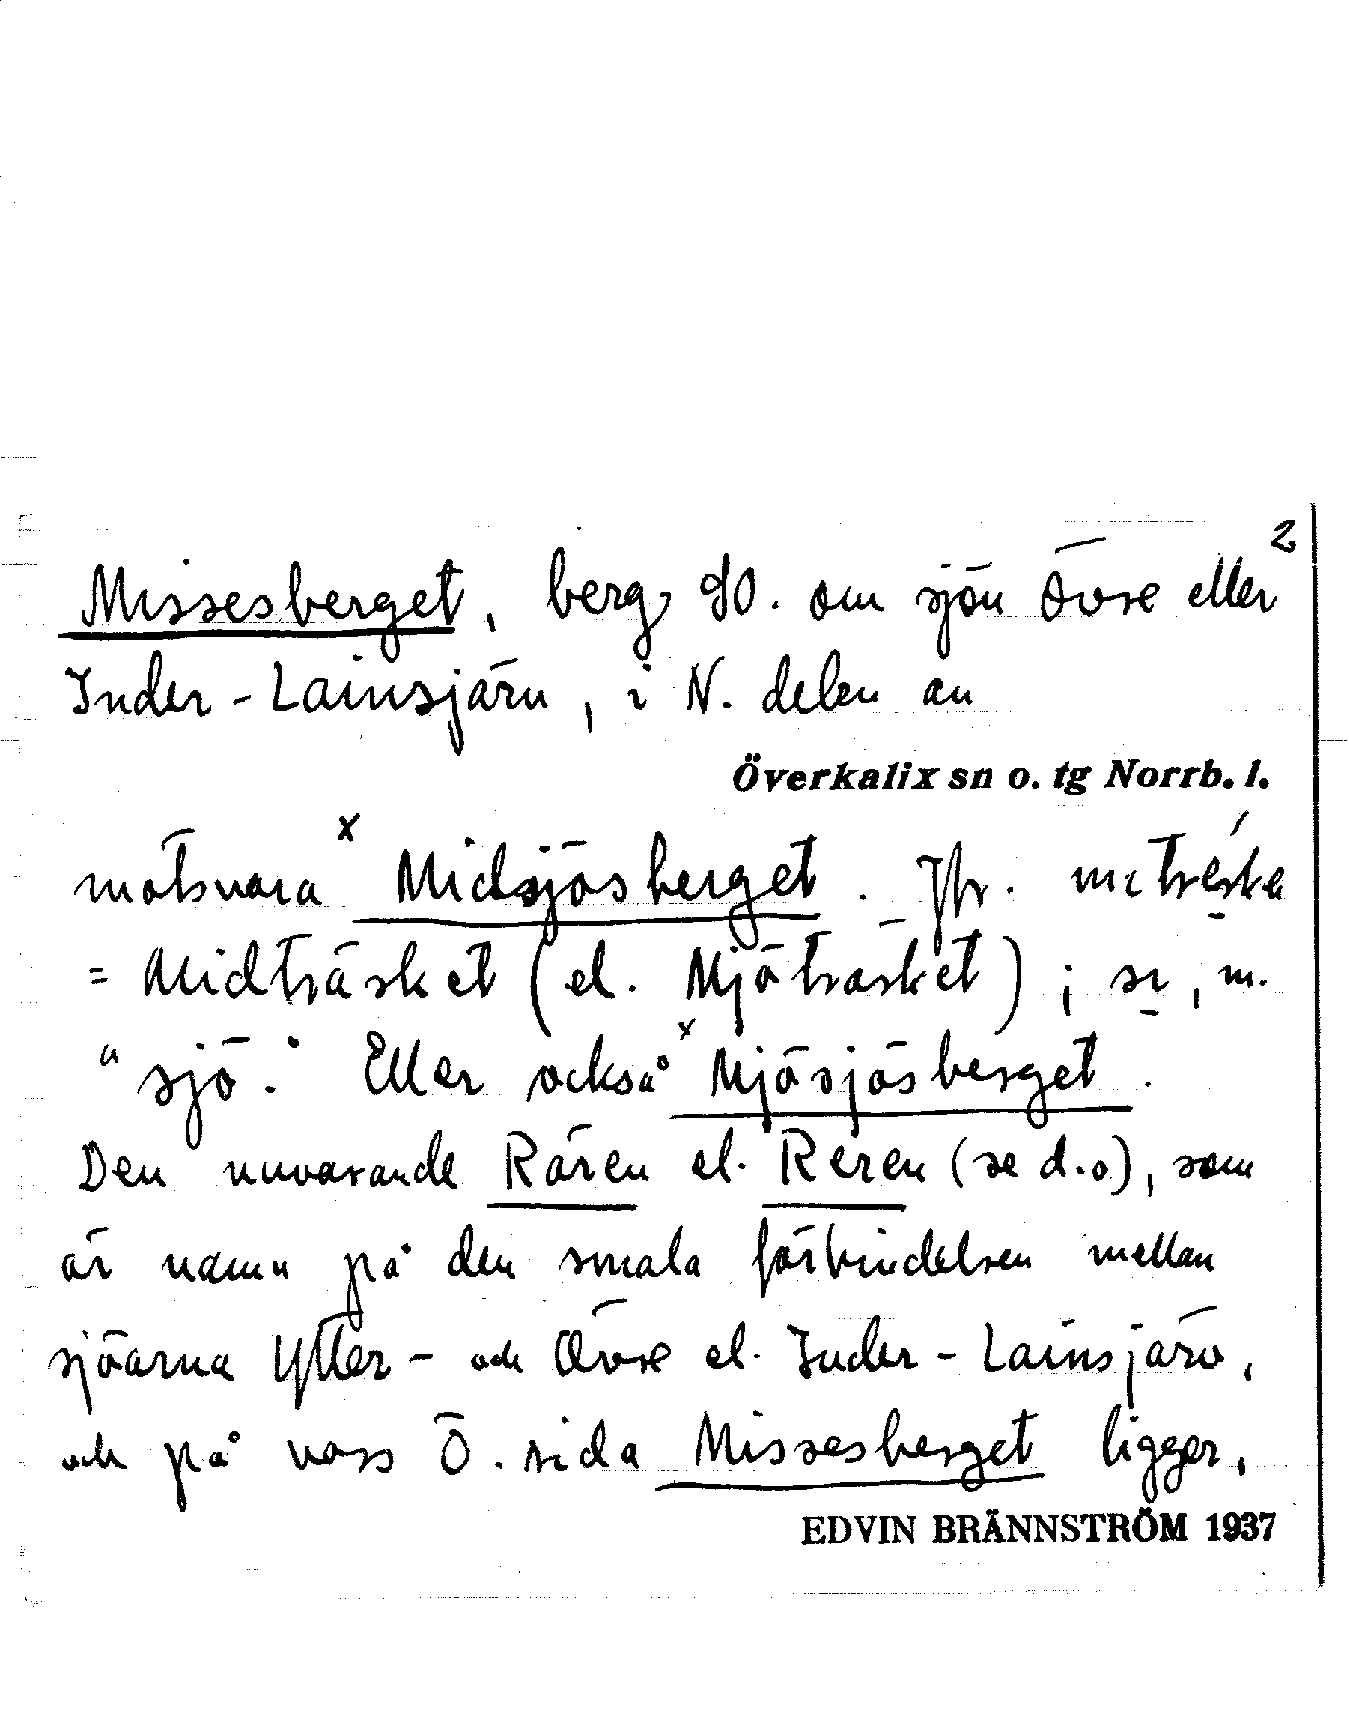 2
Missesberget, berg SO. om sjön Övre eller
Inder-Lainsjärv, i N. delen av
Överkalix sn o. tg Norrb. l.
motsvara x Midsjösberget. Jfr. mıtrèska
= Midträsket (el. Mjöträsket); sı, m.
"sjö." Eller också x Mjösjösberget.
Den nuvarande Rären el. Reren (se d.o), som
är namn på den smala förbindelsen mellan
sjöarna Ytter- och Övre el. Inder-Lainsjärv,
och på vars Ö. sida Missesberget ligger,
EDVIN BRÄNNSTRÖM 1937